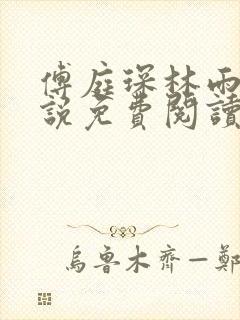 傅庭琛林雨
說免費閱讀
烏魯木齊—鄭